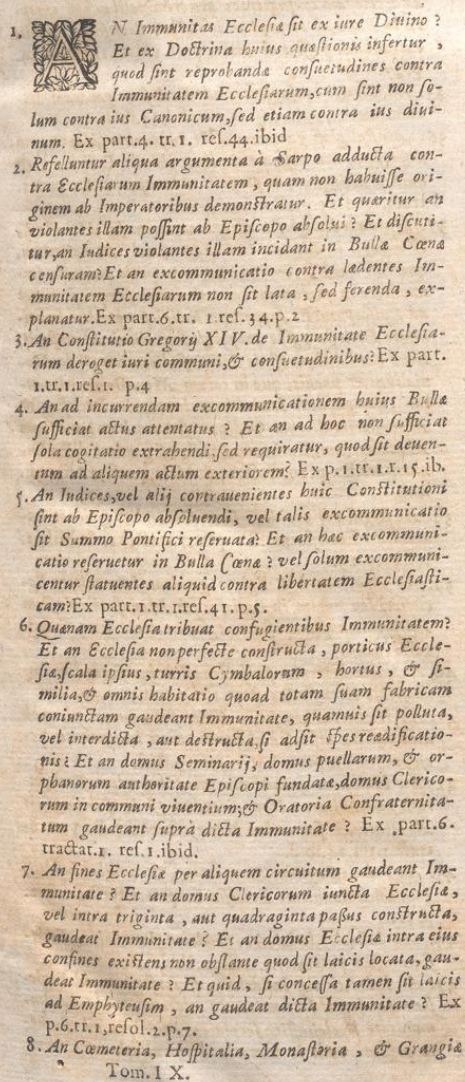 1. AN Immunitas Ecclesiæ sit ex iure Diuino ?
Et ex Doctrina huius quæstionis infertur ,
quod sint reprobandæ consuetudines contra
Immunitatem Ecclesiarum,cum sint non so-
lum contra ius Canonicum,sed etiam contra ius diui-
num. Ex part.4. tr. 1. res.44.ibid
2. Refelluntur aliqua argumenta à Sarpo adducta con-
tra Ecclesiarum Immunitatem , quam non habuisse ori-
ginem ab Imperatoribus demonstratur. Et quæritur an
violantes illam possint ab Episcopo absolui ? Et discuti-
tur,an Iudices violantes illam incidant in Bullæ Cœnæ
censuram?Et an excommunicatio contra lædentes Im-
munitatem Ecclesiarum non sit lata , sed ferenda , ex-
planatur.Ex par.6.tr. 1.res.34.p.2
3. An Constitutio Gregorij XIV. de Immunitate Ecclesia-
rum deroget iuri communi,& consuetudinibus?Ex part.
1.tr.1.res.1. p.4
4. An ad incurrendam excommunicationem huius Bullæ
sufficiat actus attentatus ? Et an ad hoc non sufficiat
sola cogitatio extrahendi,sed requiratur, quod sit deuen-
tum ad aliquem actum exteriorem? Ex p.1.tr.1.r.15.ib.
5. An Iudices,vel alij contrauenientes huic Constitutioni
sint ab Episcopo absoluendi, vel talis excommunicatio
sit Summo Pontifici reseruata? Et an hæc excommuni-
catio reseruetur in Bulla Cœnæ ? vel solum excommuni-
centur statuentes aliquid contra libertatem Ecclesiasti-
cam?Ex part.1.tr.1.res.41.p.5.
6. Quænam Ecclesia tribuat confugientibus Immunitatem?
Et an Ecclesia non perfecte constructa , porticus Eccle-
siæ,scala ipsius,turris Cymbalorum , hortus , & si-
milia,& omnis habitatio quoad totam suam fabricam
coniunctam gaudeant Immunitate, quamuis sit polluta,
vel interdicta , aut destructa,si adsit spes reædificatio-
nis ? Et an domus Seminarij, domus puellarum, & or-
phanorum authoritate Episcopi fundatæ,domus Clerico-
rum in communi viuentium;& Oratoria Confraternita-
tum gaudeant supra dicta Immunitate ? Ex part.6.
tractat.1. res.1.ibid.
7. An fines Ecclesiæ per aliquem circuitum gaudeant Im-
munitate ? Et an domus Clericorum iuncta Ecclesiæ,
vel intra triginta , aut quadraginta passus constructa,
gaudeat Immunitate ? Et an domus Ecclesiæ intra eius
confines existens non obstante quod sit laicis locata, gau-
deat Immunitate ? Et quid , si concessa tamen sit laicis
ad Emphyteusim , an gaudeat dicta Immunitate ? Ex
p.6.tr.1,resol.2.p.7.
8. An Cœmeteria, Hospitalia, Monasteria , & Grangiæ
Tom. I X.